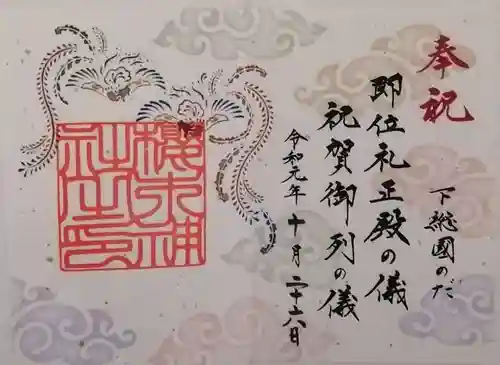 奉祝
下総國のだ
即位礼正殿の儀
祝賀御列の儀
令和元年十月二十六日
櫻木神社之印